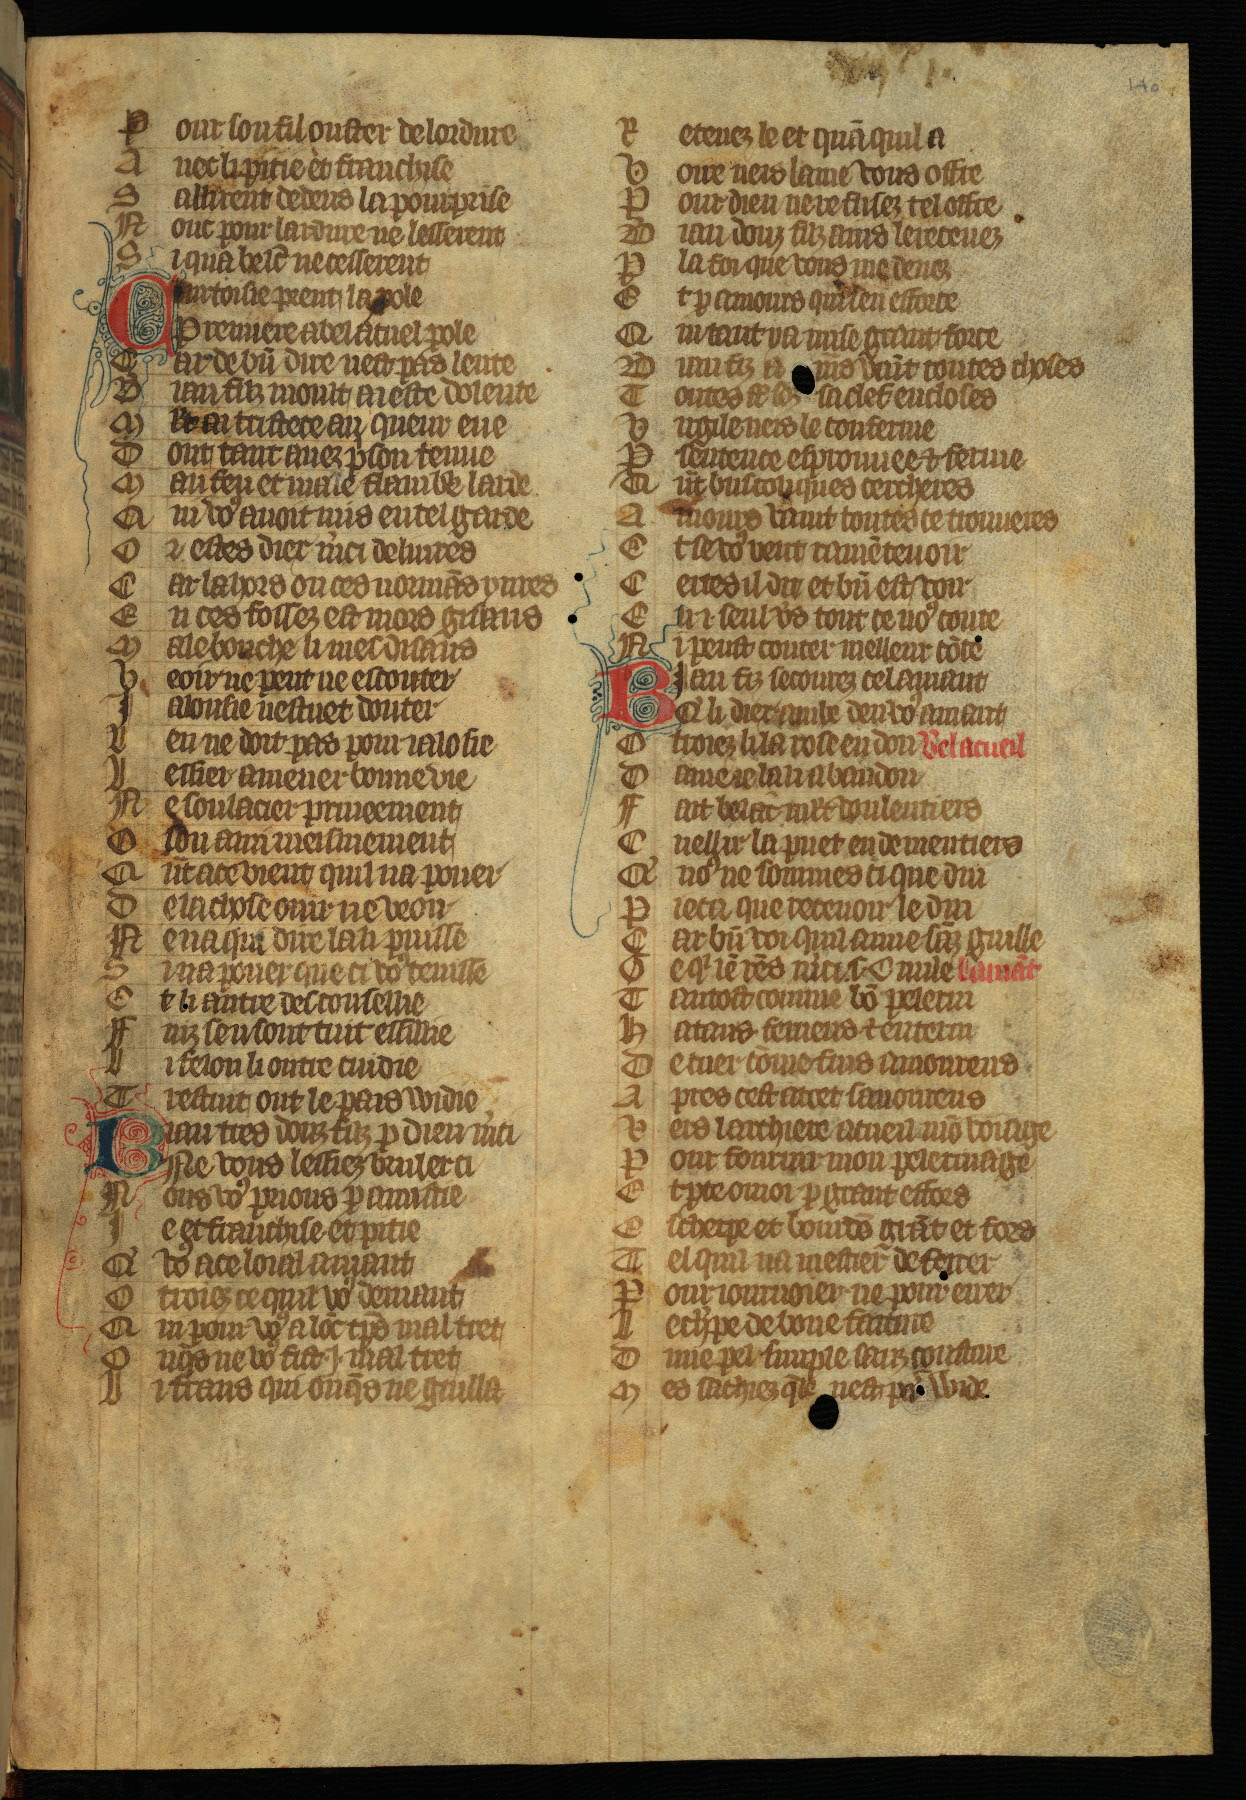 Pour son fil ouster de lordure
Auec li pitie et franchise
Saillirent dedens la pourprise
Nont pour lardure ne lesserent
Si qua belc̄ ne cesserent
Courtoisie prent la pole
Premiere a bel acuel pole
Car de bn̄ dire nest pas lente
Biau filz mout ai este dolente
Mlt ai tristece au queur eue
Dont tant auez pson tenue
Mau feu et male flambe larde
Qui voꝰ auoit mis en tel garde
Or estes dieu m̄ci deliures
Car la hors o ces normās yures
En ces fossez est mors gisans
Malebouche li mesdisans
Veoir ne peut ne escouter
Jalousie nestuet douter
Len ne doit pas pour ialosie
Lessier a mener bonne vie
Ne soulacier priueement
O son ami meismement
Qūt a ce vient quil na pouer
De la chose ouir ne veoir
Ne na qui dire la li puisse
Si na pouer que ci voꝰ truisse
Et li autre desconseillie
Fuiz sen sont tuit essillie
Li felon li outre cuidie
Trestuit ont le pais widie
Biau tres douz filz p dieu m̄ci
Ne vous lessiez bruler ci
Nous voꝰ prions p amistie
Je et franchise et pitie
Q̄ voꝰ a ce loial amant
Otroiez ce quil voꝰ demant
Qui pour voꝰ a lōc tp̄s mal tret
Onq̄s ne voꝰ fist .j. mal tret
Li frans qui onq̄s ne guilla
Retenez le et quā quil a
Voire neis lame vous offre
Pour dieu ne refusez tel offre
Biau douz filz ains le receuez
Par la foi que vous me deuez
Et p amours qui sen efforce
Qui tant y a mise grant force
Biau filz a m̄s vaīt toutes choses
Toutes st̄ souz sa clef encloses
Virgile neis le conferme
Par sentence esprouuee ⁊ ferme
Qūt bucoliques cercheres
Amours vaint toutes ce trouueres
Et se voꝰ veut ramēteuoir
Certes il dit et bn̄ est voir
En .i. seul vs̄ tout ce noꝰ conte
Ni peust conter mellieur cōte
Biau filz secourez cel amant
Q̄ li diex ambe deuꝰ voꝰ amant
Otroiez li la rose en don Belacueil
Dame ie la li abandon
Fait belac̄ mlt̄ voulentiers
Cueillir la puet endementiers
Q̄ noꝰ ne sommes ci que dui
Pieca que receuoir le dui
Car bn̄ voi quil aime sāz guille
Je q̄ iē rēs m̄cis .C. mile lamāt
Tantost comme bō pelerin
Hatans feruens ⁊ enterin
De cuer cōme fins amoureus
Apres cest otroi sauoureus
Vers larchiere acueil mō voiage
Pour fournir mon pelerinage
Et porte o moi p grant effors
Escherpe et bourdō grāt et fors
Tel quil na mestier de ferrer
Pour iournoier ne pour errer
Lechr̄pe de bone faiture
Dune pel souple sanz cousture
Mes sachiez q̄le nest pas wide